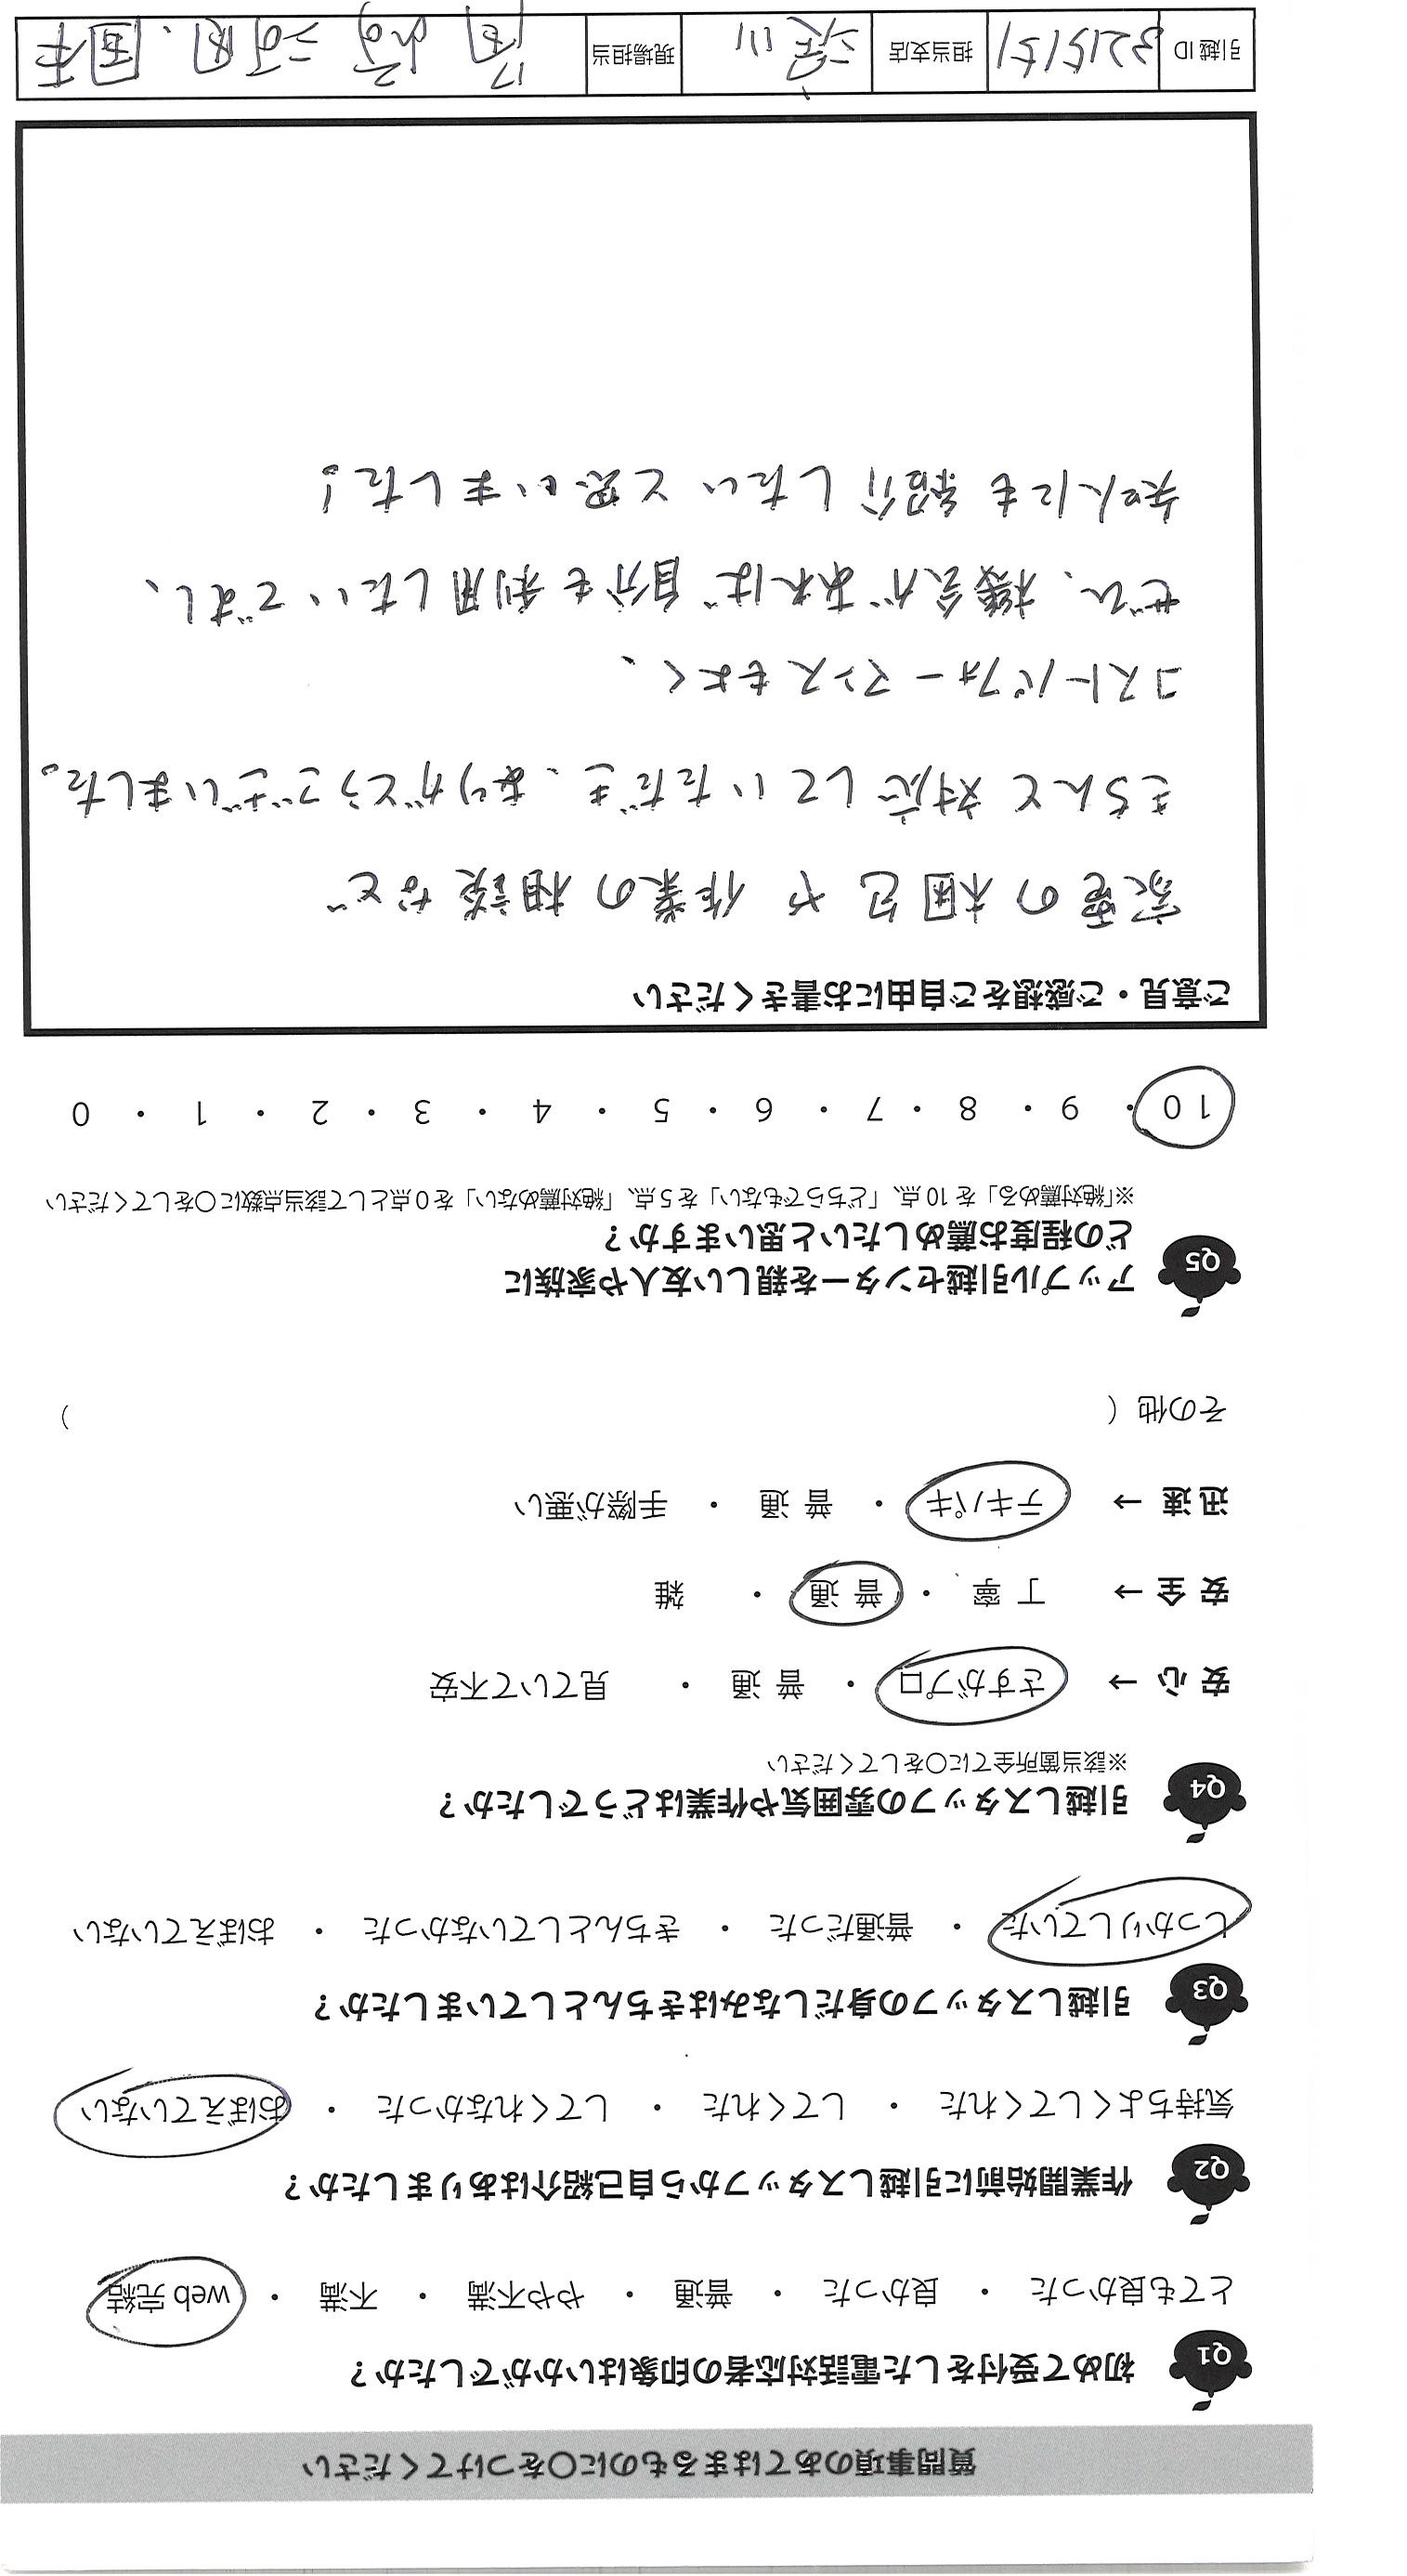 質問事項のあてはまるものに〇をつけてください
Q1 初めて受付をした電話対応者の印象はいかがでしたか？
とても良かった ・ 良かった ・ 普通 ・ やや不満 ・ 不満 ・ web 完結
Q2 作業開始前に引越しスタッフから自己紹介はありましたか？
気持ちよくしてくれた ・ してくれた ・ してくれなかった ・ おぼえていない
Q3 引越しスタッフの身だしなみはきちんとしていましたか？
しっかりしていた ・ 普通だった ・ きちんとしていなかった ・ おぼえていない
Q4 引越しスタッフの雰囲気や作業はどうでしたか？
※該当箇所全てに〇をしてください
安心 → さすがプロ ・ 普通 ・ 見ていて不安
安全 → 丁寧 ・ 普通 ・ 雑
迅速 → テキパキ ・ 普通 ・ 手際が悪い
その他（ ）
Q5 アップル引越センターを親しい友人や家族に
どの程度お薦めしたいと思いますか？
※「絶対薦める」を 10 点、「どちらでもない」を 5 点、「絶対薦めない」を 0 点として該当点数に〇をしてください
10 ・ 9 ・ 8 ・ 7 ・ 6 ・ 5 ・ 4 ・ 3 ・ 2 ・ 1 ・ 0
ご意見・ご感想をご自由にお書きください
家電の梱包や作業の相談など
きちんと対応していただき、ありがとうございました。
コストパフォーマンスもよく、
ぜひ、機会があれば自分も利用したいですし、
友人にも紹介したいと思いました！
引越 ID 担当支店 現場担当